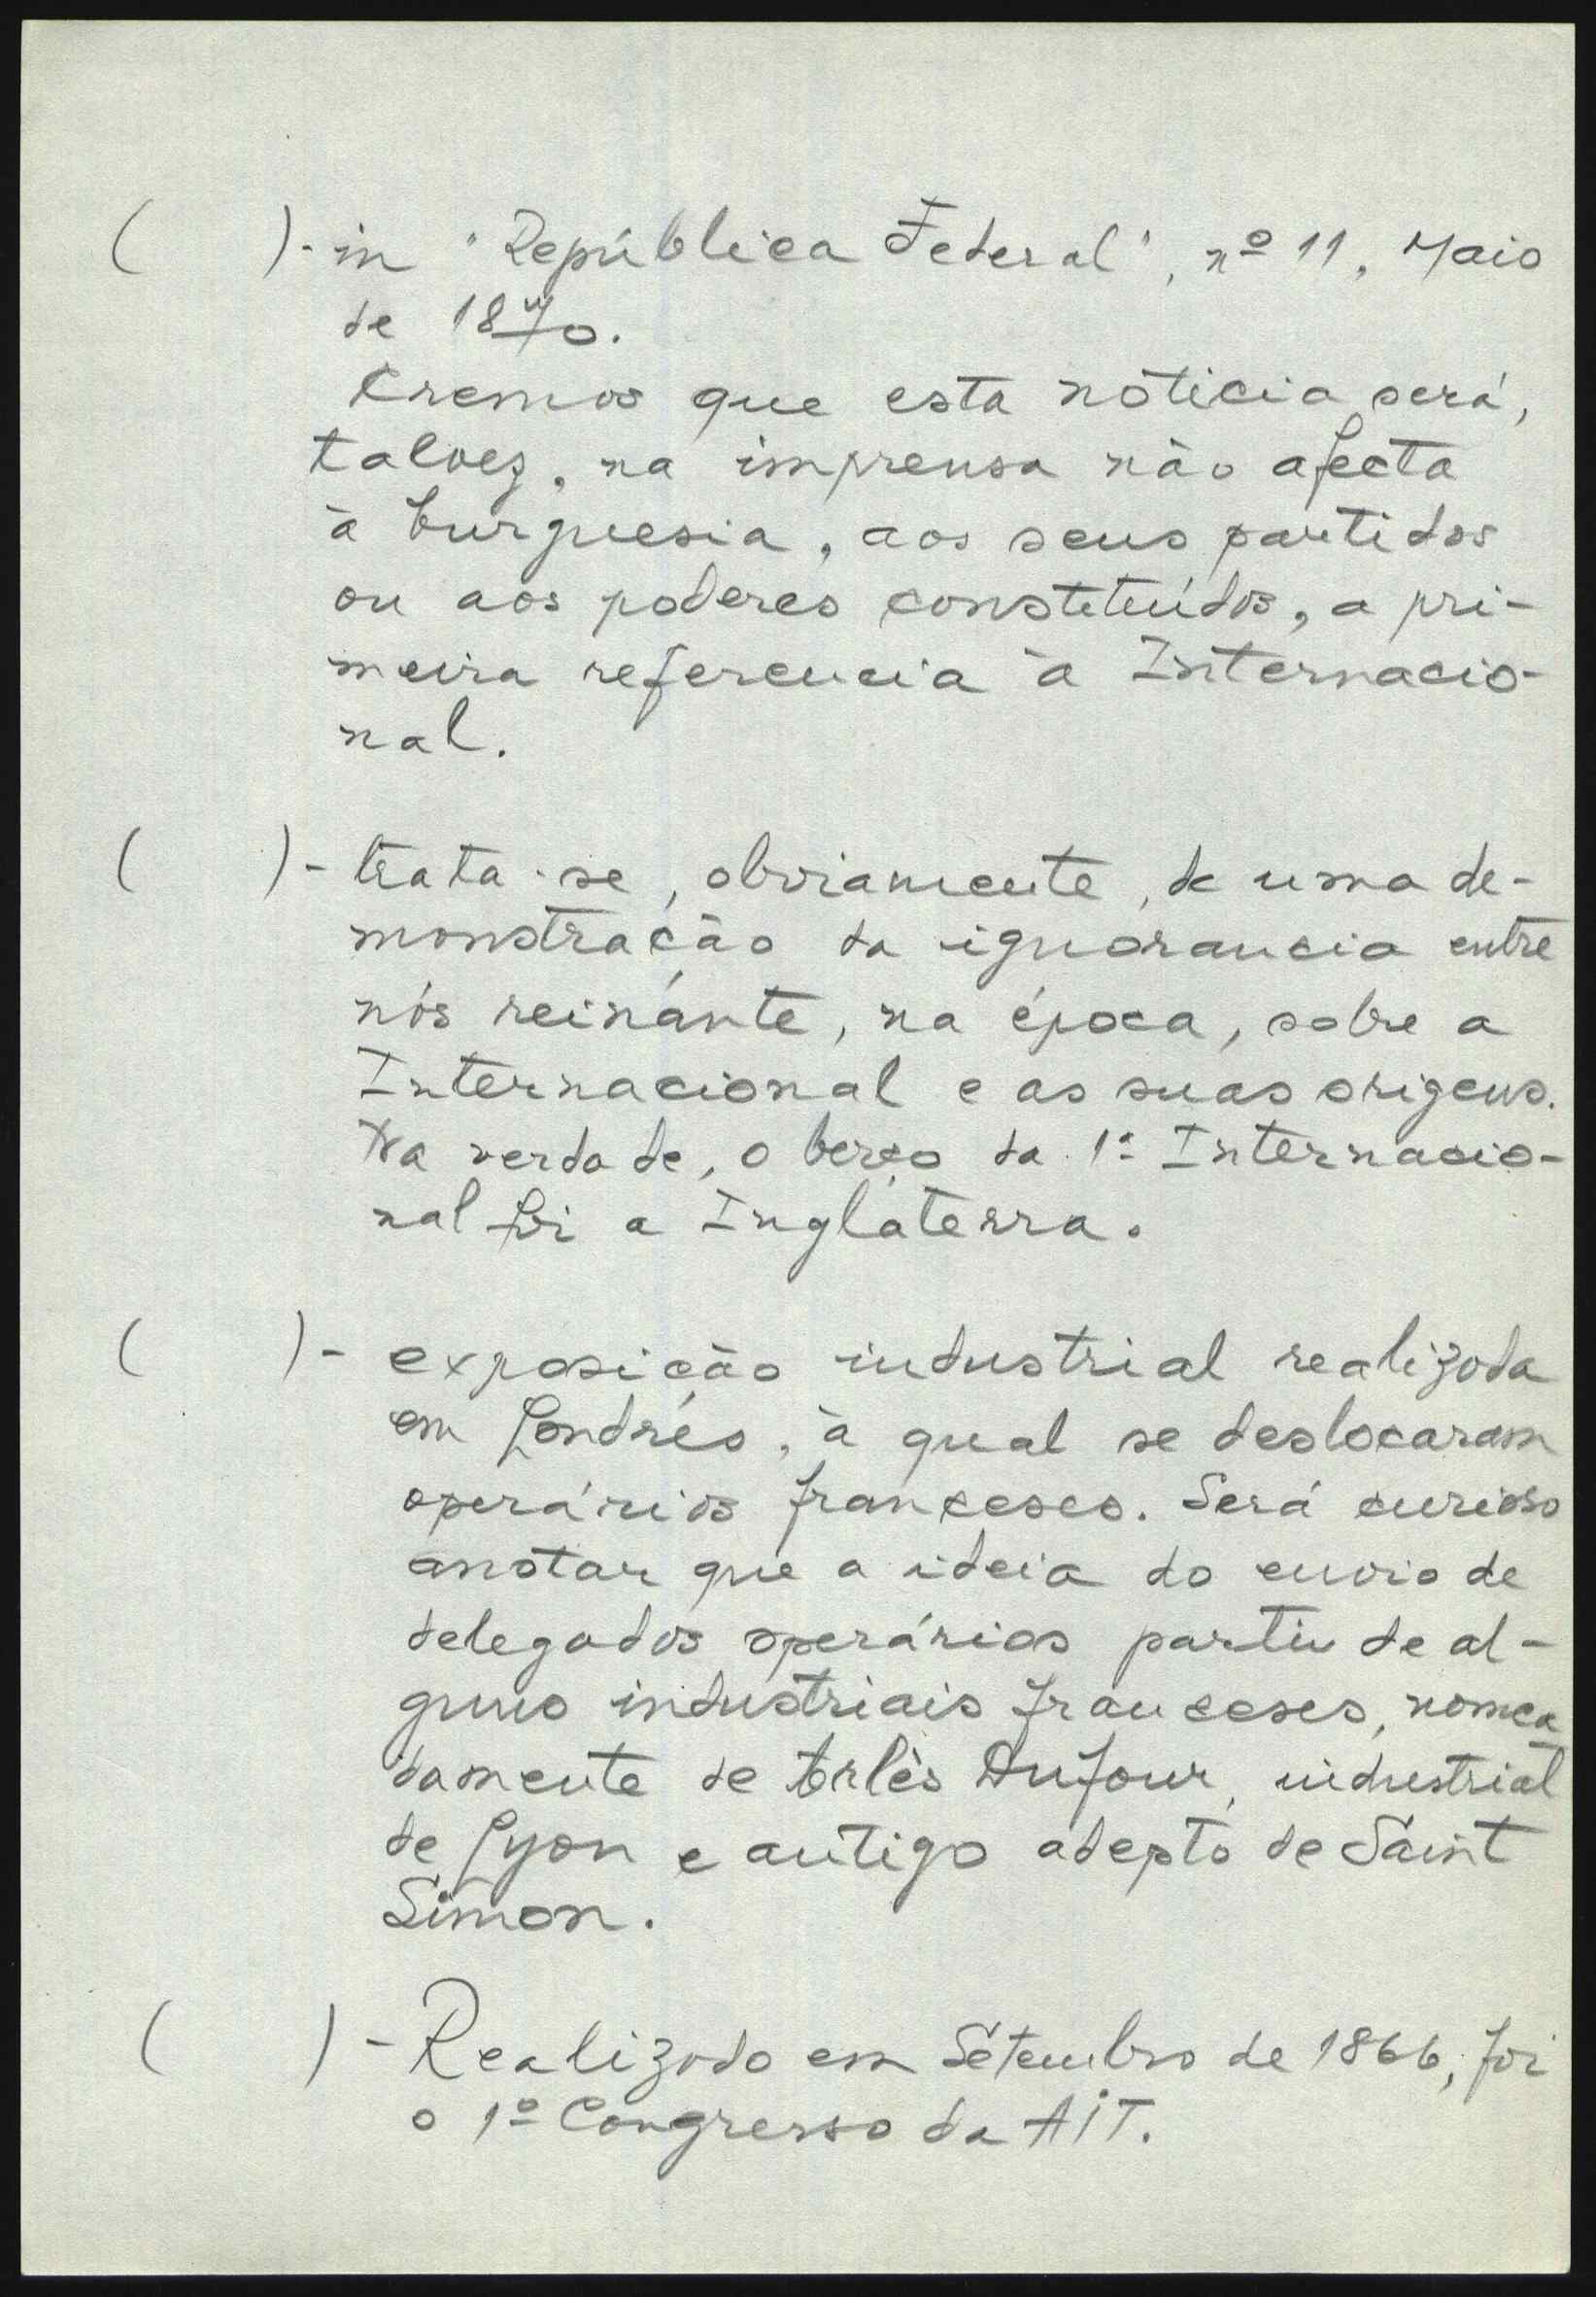 ( )- in "República Federal", nº 11, Maio
de 1870.
Cremos que esta noticia será,
talvez, na imprensa não afecta
à burguesia, aos seus partidos
ou aos poderes constituídos, a pri-
meira referencia à Internacio-
nal.
( )- trata-se, obviamente, de uma de-
monstração da ignorancia entre
nós reinante, na época, sobre a
Internacional e as suas origens.
Na verdade, o berço da 1ª Internacio-
nal foi a Inglaterra.
( )- exposição industrial realizada
em Londres, à qual se deslocaram
operários franceses. Será curioso
anotar que a ideia do envio de
delegados operários partiu de al-
guns industriais franceses, nomea
damente de Arlès Dufour, industrial
de Lyon e antigo adepto de Saint
Simon.
( )- Realizado em Setembro de 1866, foi
o 1º Congresso da AIT.